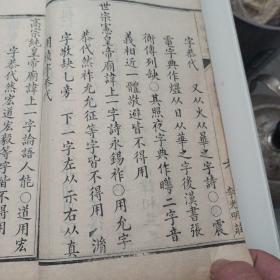 字恭代 又从火从華之字詩○○震
雷字典作爗从日从華之字後漢書張
衡傳列缺○其照夜字典作曄二字音
義相近一體敬避皆不得用
世宗憲皇帝廟諱上一字詩永錫祚○用允字
恭代然祚允允征等字皆不得用
字敬缺乚旁 下一字左从示右从真
高宗純皇帝廟諱上一字論語人能○道用宏
字恭代然宏道宏毅等字皆不得用
李光明莊